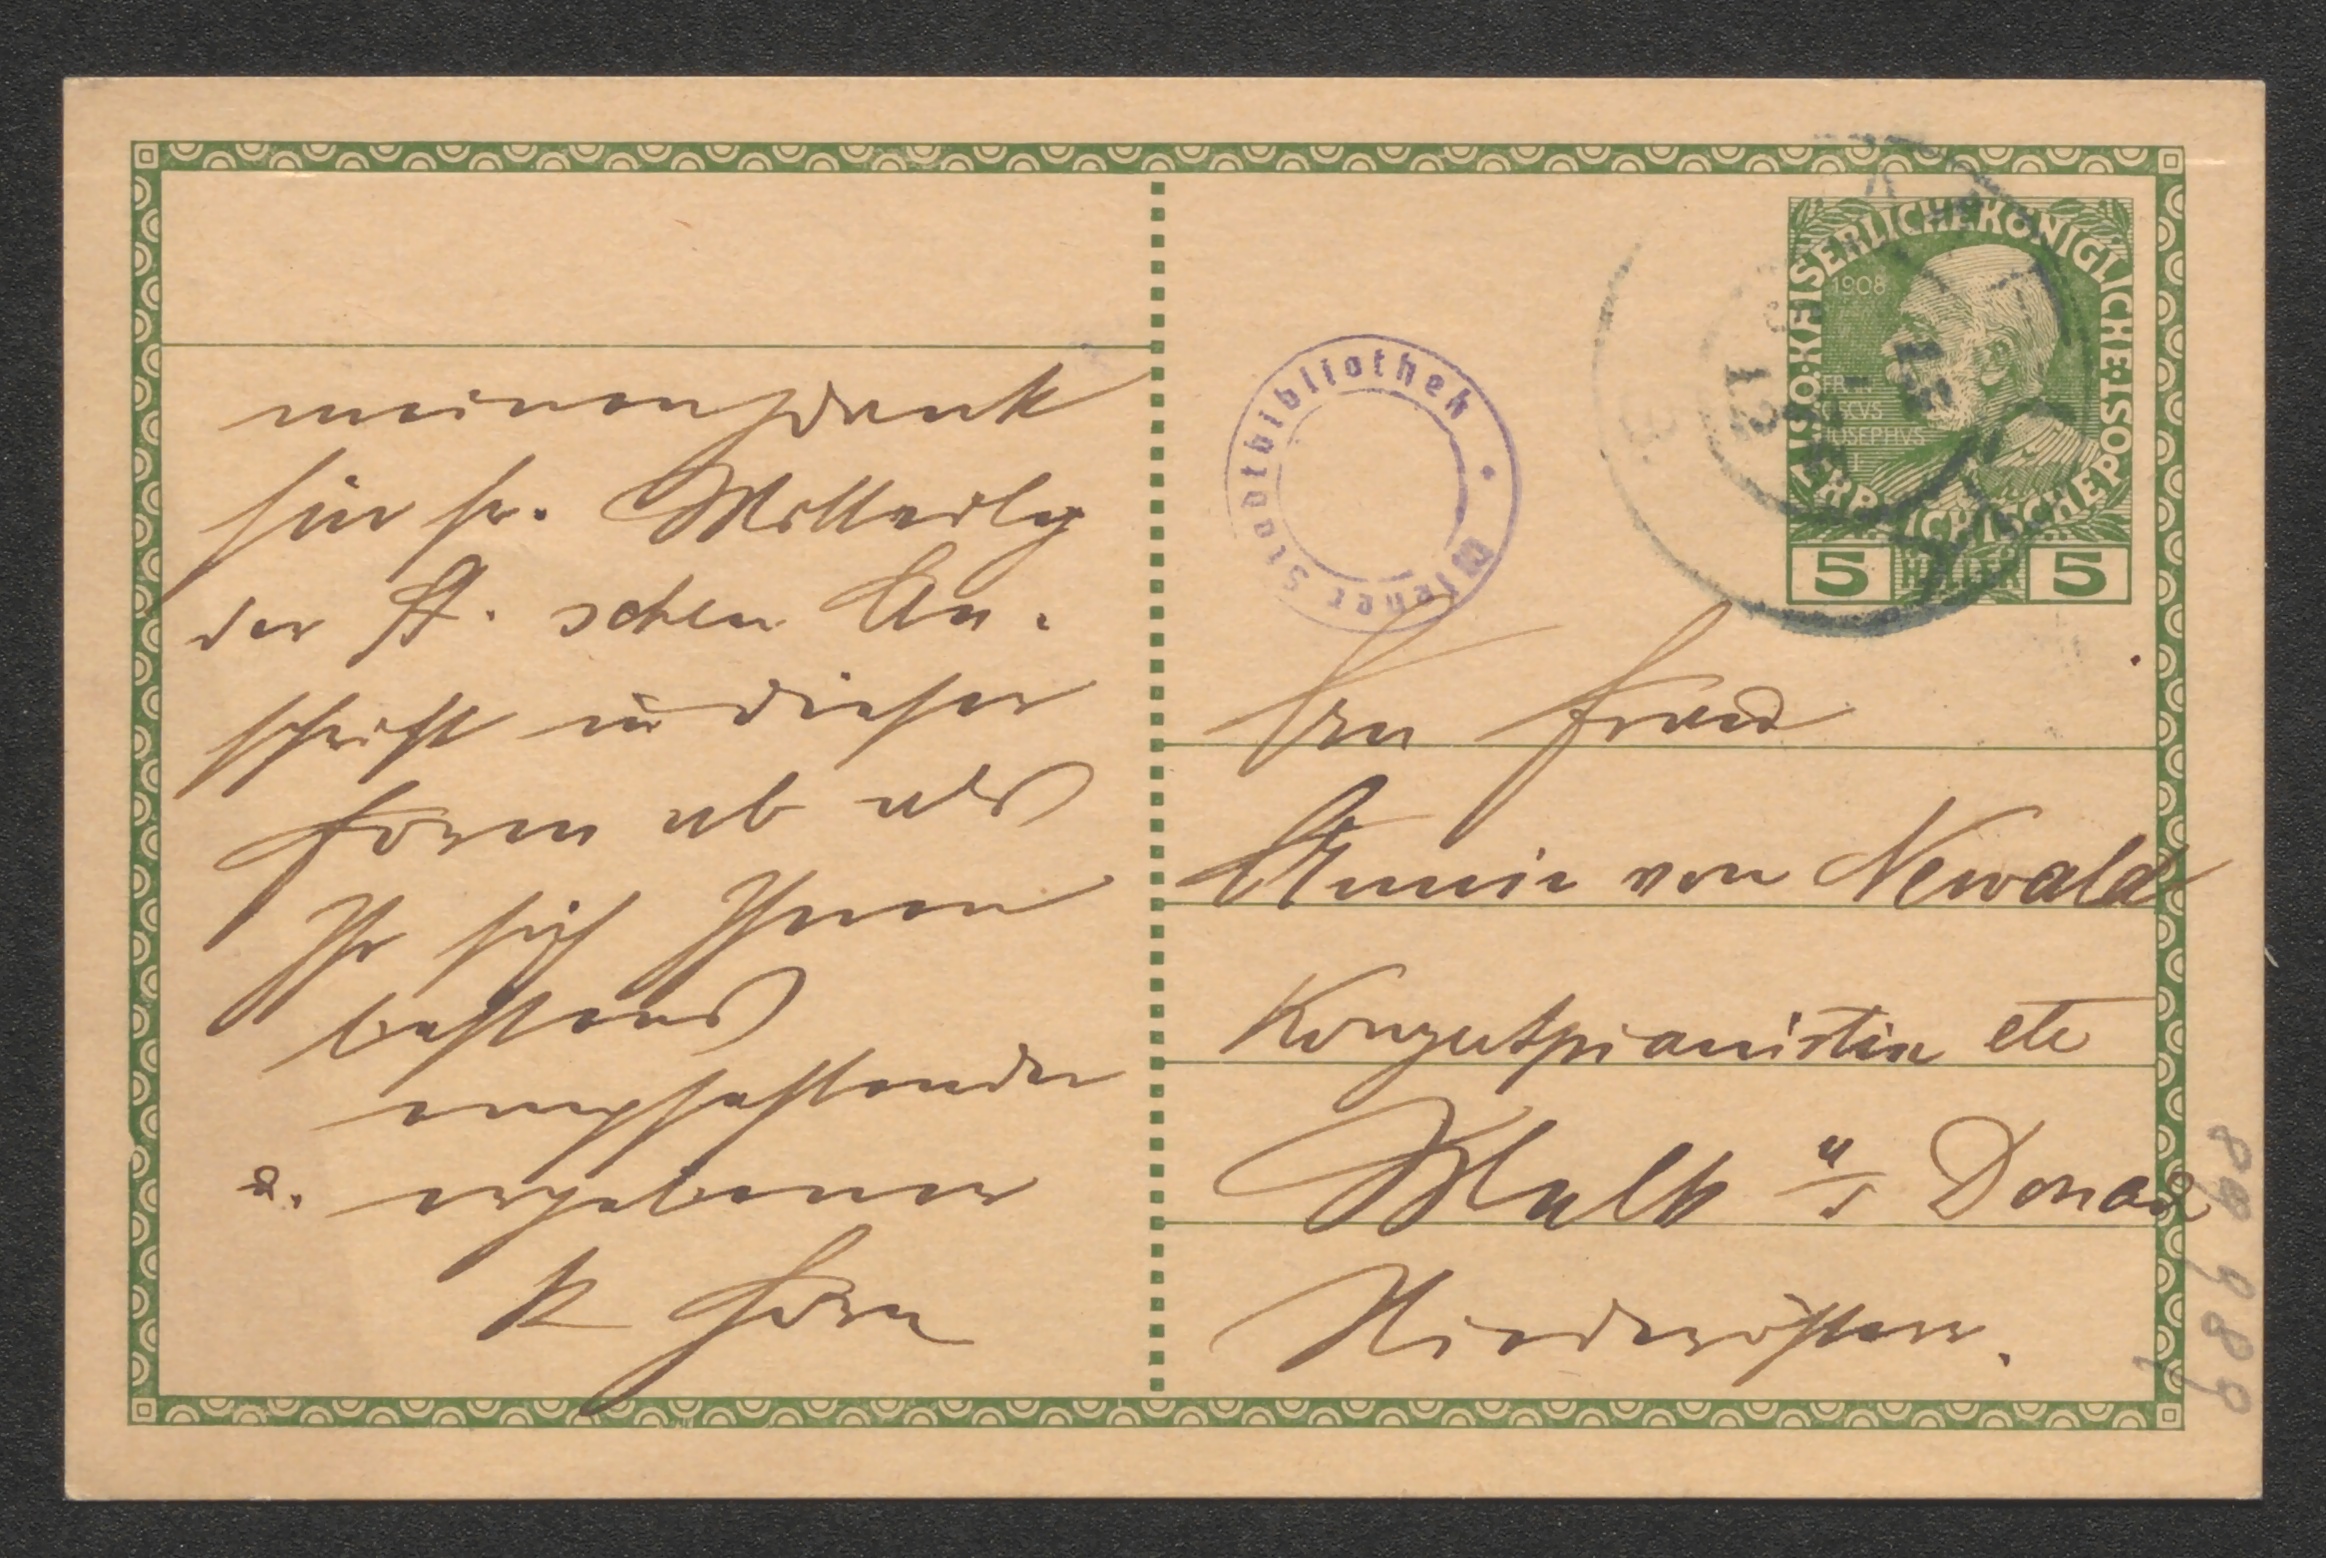 meinen Dank
für fr. Mitteilg
der A. schen An-
schrift in dieser
Form ab als
Ihr sich Ihnen
bestens
empfehlender
u. ergebener
K Horn
Wiener Stadtbibliothek
KAISERLICHE KÖNIGLICHE
ÖSTERREICHISCHE POST
1908
5 HELLER 5
12
An Frau
Annie von Newald
Konzertpianistin etc
Melk a/d Donau
Niederösterr.